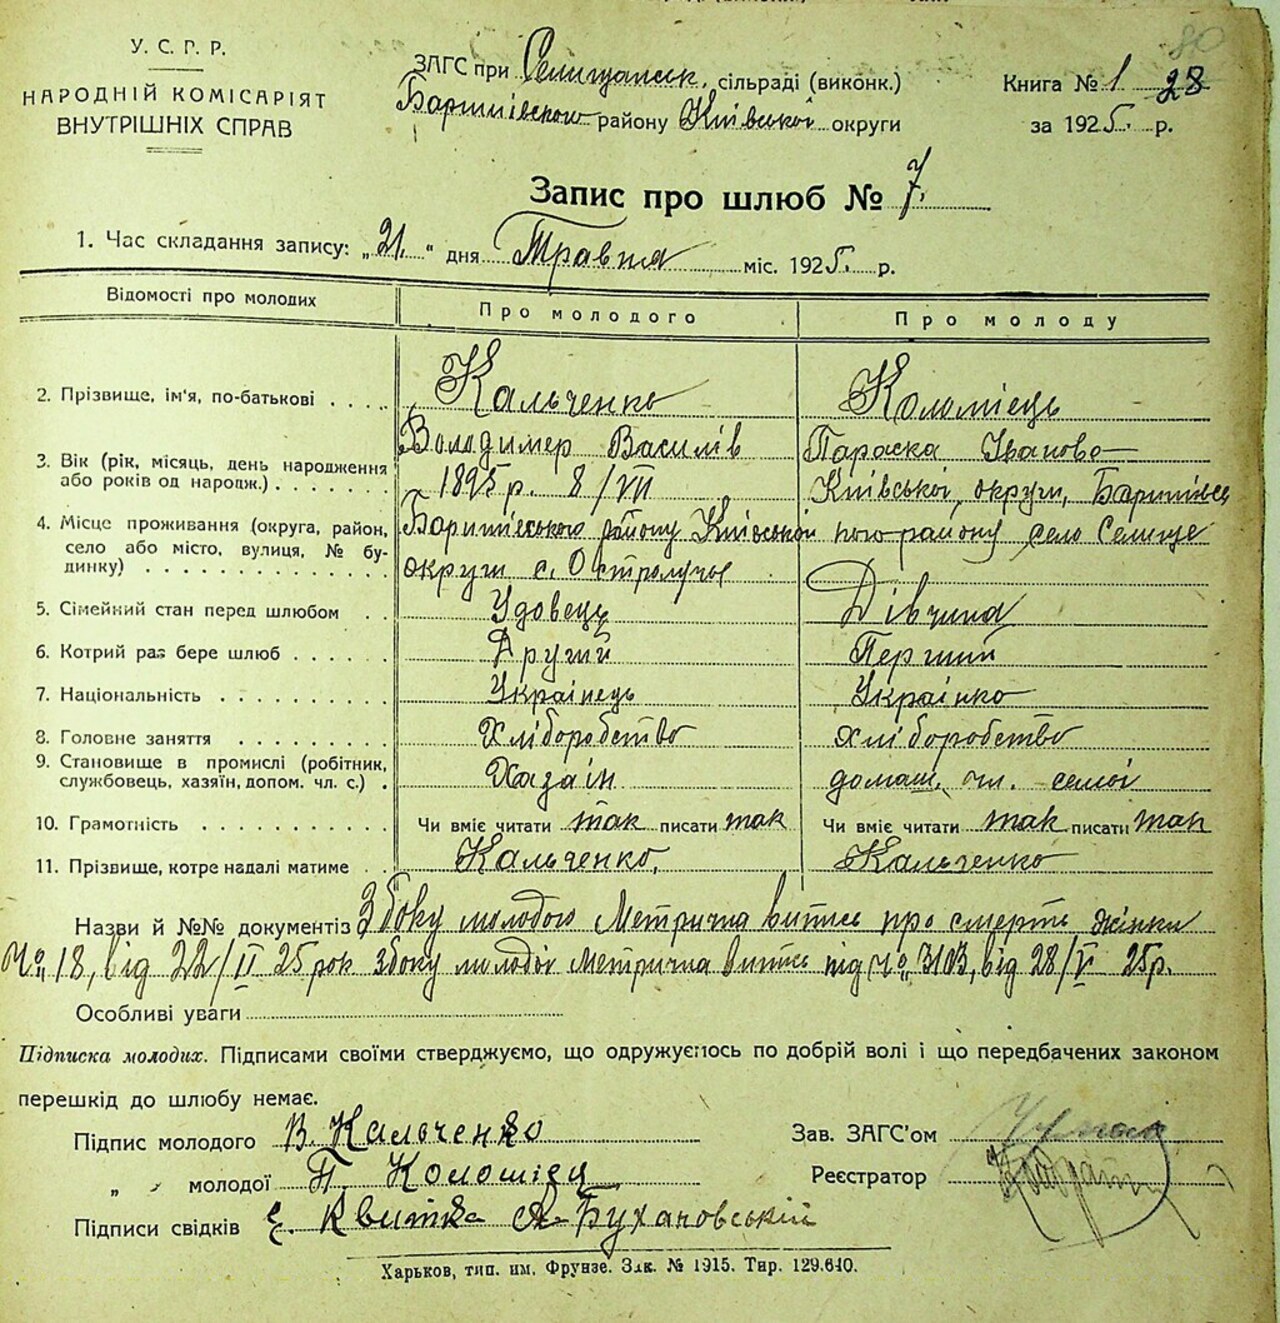 У. С. Р. Р.
НАРОДНІЙ КОМІСАРІЯТ
ВНУТРІШНІХ СПРАВ
ЗАГС при Селищанськ. сільраді (виконк.)
Баришівського району Київської округи
Книга № 1 28
80
за 1925. р.
Запис про шлюб № 7.
1. Час складання запису: „21." дня Травня міс. 1925. р.
Відомості про молодих
Про молодого
Про молоду
2. Прізвище, ім'я, по-батькові
Кальченко
Коломієць
Володимер Василів
Параска Іванова
3. Вік (рік, місяць, день народження або років од народж.)
1895 р. 8/VII
4. Місце проживання (округа, район, село або місто, вулиця, № будинку)
Баришівського району Київської
округи с. Остролуччє
Київської округи, Баришівсь
кого району село Селище
5. Сімейний стан перед шлюбом
Удовець
Дівчина
6. Котрий раз бере шлюб
Другий
Перший
7. Національність
Українець
Українко
8. Головне заняття
Хліборобство
хліборобство
9. Становище в промислі (робітник, службовець, хазяїн, допом. чл. с.)
Хазаін
домаш. чл. семоі
10. Грамотність
Чи вміє читати так писати так
Чи вміє читати так писати так
11. Прізвище, котре надалі матиме
Кальченко,
Кальченко
Назви й №№ документів З боку молодого Метрична витись про смерть жінки
Чо 18, від 22/II 25 рок збоку молодоі Метрична витись під Чо 3103, від 28/V 25р.
Особливі уваги
Підписка молодих. Підписами своїми стверджуємо, що одружуємось по добрій волі і що передбачених законом
перешкід до шлюбу немає.
Підпис молодого В. Кальченко
„ молодої П. Коломієц
Підписи свідків Є. Квитка А. Бухановській
Зав. ЗАГС'ом
Реєстратор
Харьков, тип. им. Фрунзе. Зак. № 1915. Тир. 129.640.